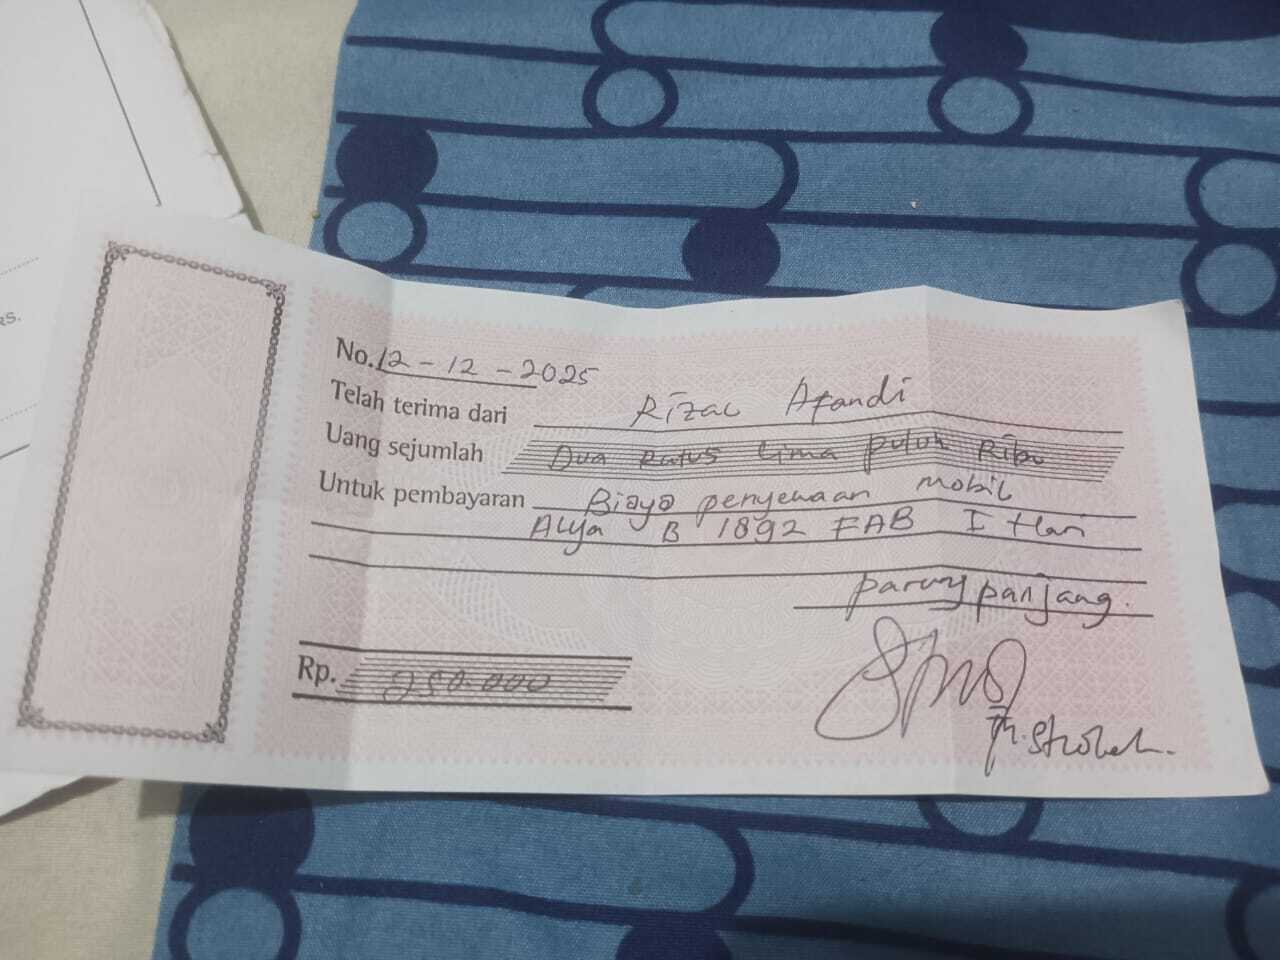 No. 12-12-2025
Telah terima dari Rizal Afandi
Uang sejumlah Dua Ratus Lima puluh Ribu
Untuk pembayaran Biaya penyewaan mobil
B 1892 FAB I Hari
parung panjang.
Rp. 250.000